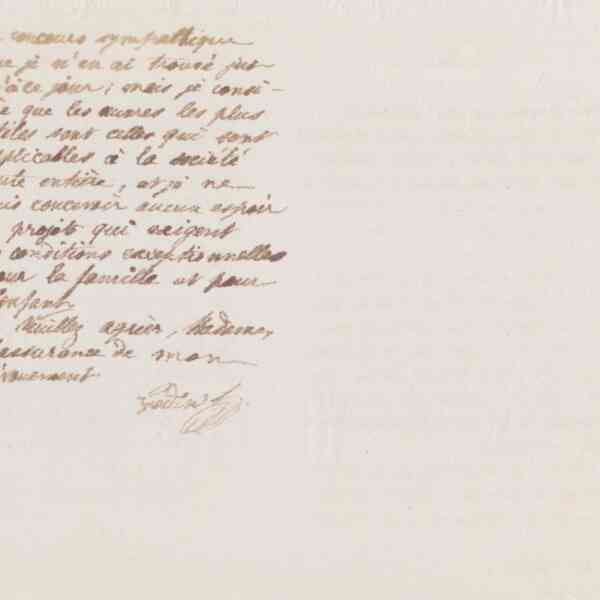 concours sympathique
que je n'en ai trouvé jus-
qu'à ce jour ; mais je consi-
que les œuvres les plus
utiles sont celles qui sont
applicables à la société
toute entière, et je ne
puis concevoir aucun espoir
projets qui exigent
conditions exceptionnelles
pour la famille et pour
l'enfant
Veuillez agréer, Madame,
l'assurance de mon
dévouement
Godin